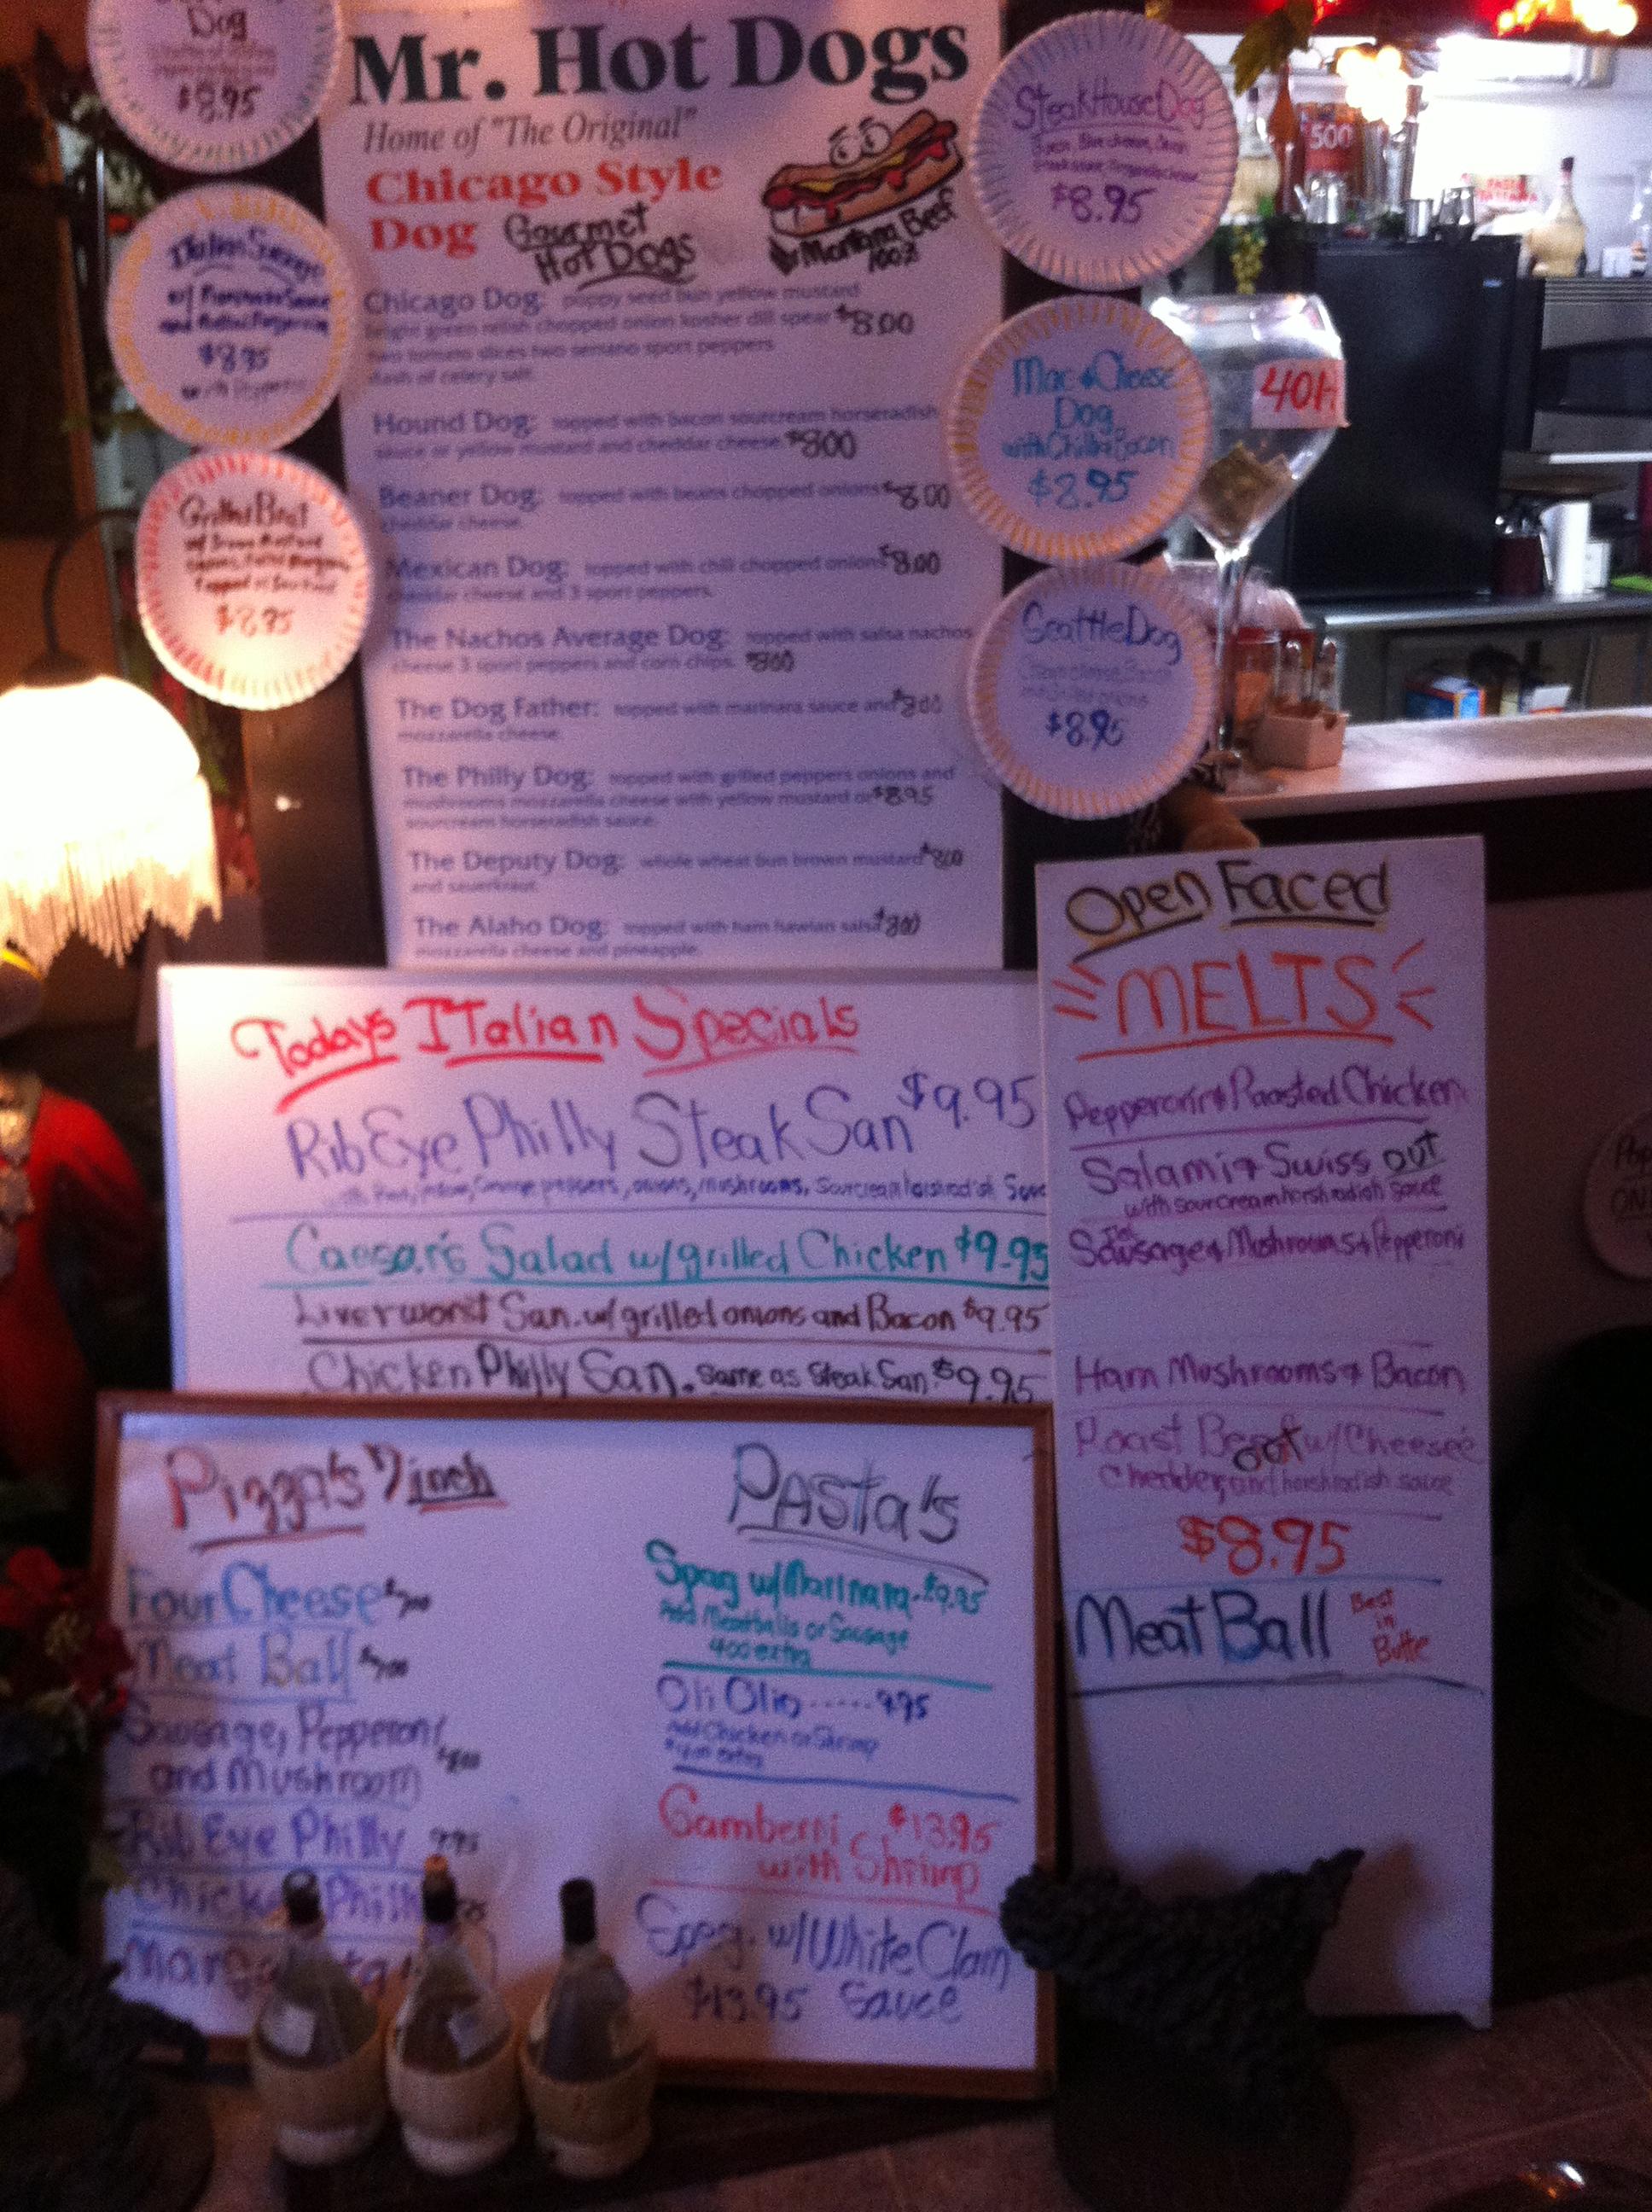 Dog
$8.95
Mr. Hot Dogs
Home of "The Original"
Chicago Style
Dog
Gourmet
Hot Dogs
Montana Beef
100%
Chicago Dog: poppy seed bun yellow mustard
bright green relish chopped onion kosher dill spear $8.00
two tomato slices two serrano sport peppers
dash of celery salt.
Hound Dog: topped with bacon sourcream horseradish
sauce or yellow mustard and cheddar cheese $800
Beaner Dog: topped with beans chopped onions $8.00
cheddar cheese.
Mexican Dog: topped with chili chopped onions $8.00
cheddar cheese and 3 sport peppers.
The Nachos Average Dog: topped with salsa nachos
cheese 3 sport peppers and corn chips. $800
The Dog Father: topped with marinara sauce and $800
mozzarella cheese.
The Philly Dog: topped with grilled peppers onions and
mushrooms mozzarella cheese with yellow mustard or $8.95
sourcream horseradish sauce.
The Deputy Dog: whole wheat bun brown mustard $800
and sauerkraut.
The Alaho Dog: topped with ham hawian salsa $800
mozzarella cheese and pineapple.
Italian Sausage
w/ Marinara Sauce
and
$8.95
with Peppers
Grilled Brat
w/ Brown Mustard
$8.95
SteakHouse Dog
Bacon, Blue cheese,
$8.95
Mac & Cheese
Dog
with Chili & Bacon
$8.95
Seattle Dog
Cream cheese, Bacon
and Grilled onions
$8.95
500
401k
Todays ITalian Specials
RibEye Philly Steak San $9.95
peppers, onions, mushrooms, Sourcream horshradish Sauce
Caesar's Salad w/grilled Chicken $9.95
Liverworst San. w/grilled onions and Bacon $9.95
Chicken Philly San. same as Steak San $9.95
Open Faced
MELTS
Pepperoni & Roasted Chicken
Salami & Swiss out
with sourcream horshradish sauce
Sausage & Mushrooms & Pepperoni
Ham Mushrooms & Bacon
Roast Beef out w/Cheese
Chedder, and horshradish sauce
$8.95
MeatBall
Best
in
Butte
Pizza's 7inch
Four Cheese $700
Meat Ball $700
Sausage, Pepperoni
and Mushroom $800
Rib Eye Philly 9.95
Chicken Philly
PASta's
Spag w/Marinara - $9.95
Add Meatballs or Sausage
400 extra
Oli Olio ...... 9.95
Add Chicken or Shrimp
$400 extra
Gamberri $13.95
with Shrimp
Spag. w/White Clam
$13.95 Sauce